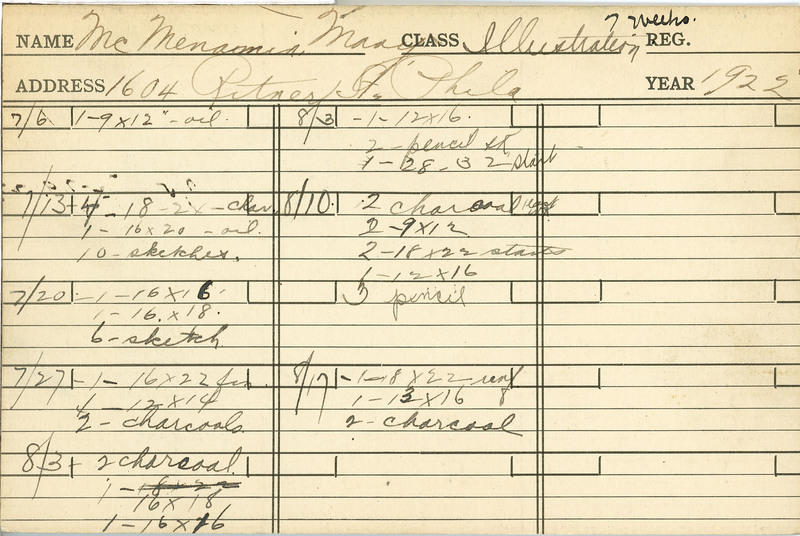 7 weeks.
NAME Mc Menamin CLASS Illustration REG.
ADDRESS 1604 Ritner St. Phila YEAR 1922
7/6 1-9x12" - oil.
7/13 + 18 - 22 - char
1 - 16x20 - oil.
10 - sketches.
7/20 - 1 - 16x16
1 - 16.x18.
6 - sketch
7/27 - 1 - 16x22
12x14
2 - charcoals
8/3 + 2 charcoal
1 - 18x22
16x18
1 - 16x16
8/3 - 1 - 12x16.
2 - pencil
1 - 28 - 32 start
8/10 2 charcoal
2 - 9x12
2 - 18x22 starts
1 - 12x16
3 pencil
8/17 - 1 - 18x22
1 - 12x16
2 - charcoal